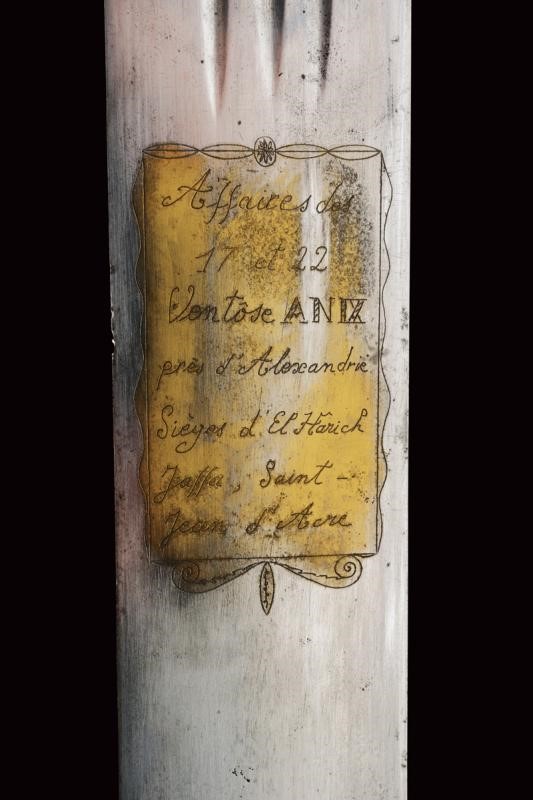 Affaires des
17 et 22
Ventôse AN IX
près d'Alexandrie
Sièges d'El Hârich
Jaffa, Saint-
Jean d'Acre